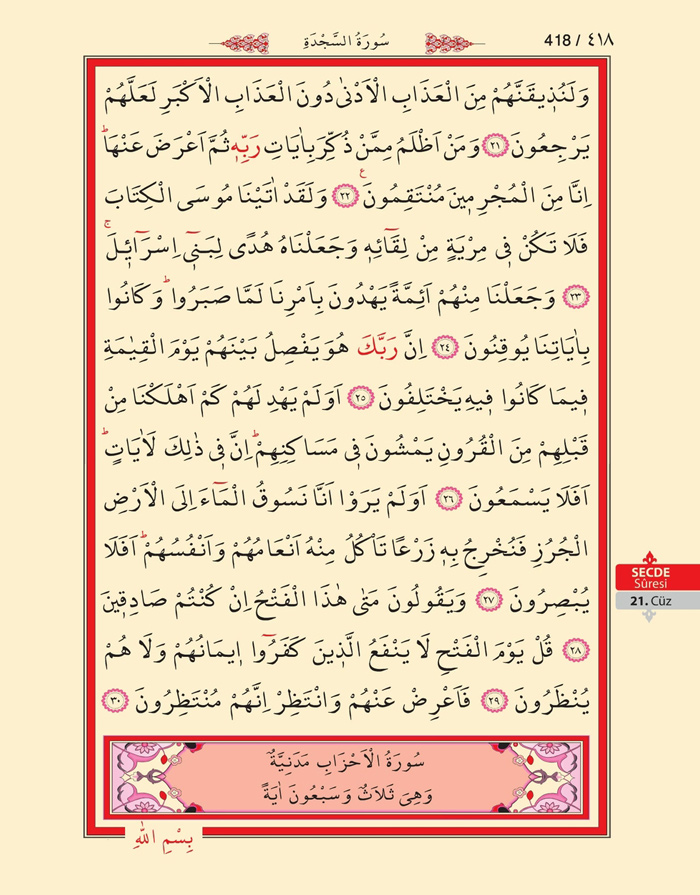 سُورَةُ السَّجْدَةِ
418 / ٤١٨
وَلَنُذ۪يقَنَّهُمْ مِنَ الْعَذَابِ الْاَدْنٰى دُونَ الْعَذَابِ الْاَكْبَرِ لَعَلَّهُمْ
يَرْجِعُونَ ﴿٢١﴾ وَمَنْ اَظْلَمُ مِمَّنْ ذُكِّرَ بِاٰيَاتِ رَبِّه۪ ثُمَّ اَعْرَضَ عَنْهَاۜ
اِنَّا مِنَ الْمُجْرِم۪ينَ مُنْتَقِمُونَ۟ ﴿٢٢﴾ وَلَقَدْ اٰتَيْنَا مُوسَى الْكِتَابَ
فَلَا تَكُنْ ف۪ي مِرْيَةٍ مِنْ لِقَٓائِه۪ وَجَعَلْنَاهُ هُدًى لِبَن۪ٓي اِسْرَٓائ۪لَۚ
﴿٢٣﴾ وَجَعَلْنَا مِنْهُمْ اَئِمَّةً يَهْدُونَ بِاَمْرِنَا لَمَّا صَبَرُواۜ وَكَانُوا
بِاٰيَاتِنَا يُوقِنُونَ ﴿٢٤﴾ اِنَّ رَبَّكَ هُوَ يَفْصِلُ بَيْنَهُمْ يَوْمَ الْقِيٰمَةِ
ف۪يمَا كَانُوا ف۪يهِ يَخْتَلِفُونَ ﴿٢٥﴾ اَوَلَمْ يَهْدِ لَهُمْ كَمْ اَهْلَكْنَا مِنْ
قَبْلِهِمْ مِنَ الْقُرُونِ يَمْشُونَ ف۪ي مَسَاكِنِهِمْۜ اِنَّ ف۪ي ذٰلِكَ لَاٰيَاتٍۜ
اَفَلَا يَسْمَعُونَ ﴿٢٦﴾ اَوَلَمْ يَرَوْا اَنَّا نَسُوقُ الْمَٓاءَ اِلَى الْاَرْضِ
الْجُرُزِ فَنُخْرِجُ بِه۪ زَرْعًا تَأْكُلُ مِنْهُ اَنْعَامُهُمْ وَاَنْفُسُهُمْۜ اَفَلَا
يُبْصِرُونَ ﴿٢٧﴾ وَيَقُولُونَ مَتٰى هٰذَا الْفَتْحُ اِنْ كُنْتُمْ صَادِق۪ينَ
﴿٢٨﴾ قُلْ يَوْمَ الْفَتْحِ لَا يَنْفَعُ الَّذ۪ينَ كَفَرُٓوا ا۪يمَانُهُمْ وَلَا هُمْ
يُنْظَرُونَ ﴿٢٩﴾ فَاَعْرِضْ عَنْهُمْ وَانْتَظِرْ اِنَّهُمْ مُنْتَظِرُونَ ﴿٣٠﴾
سُورَةُ الْاَحْزَابِ مَدَنِيَّةٌ
وَهِيَ ثَلَاثٌ وَسَبْعُونَ اٰيَةً
بِسْمِ اللّٰهِ
SECDE
Sûresi
21. Cüz